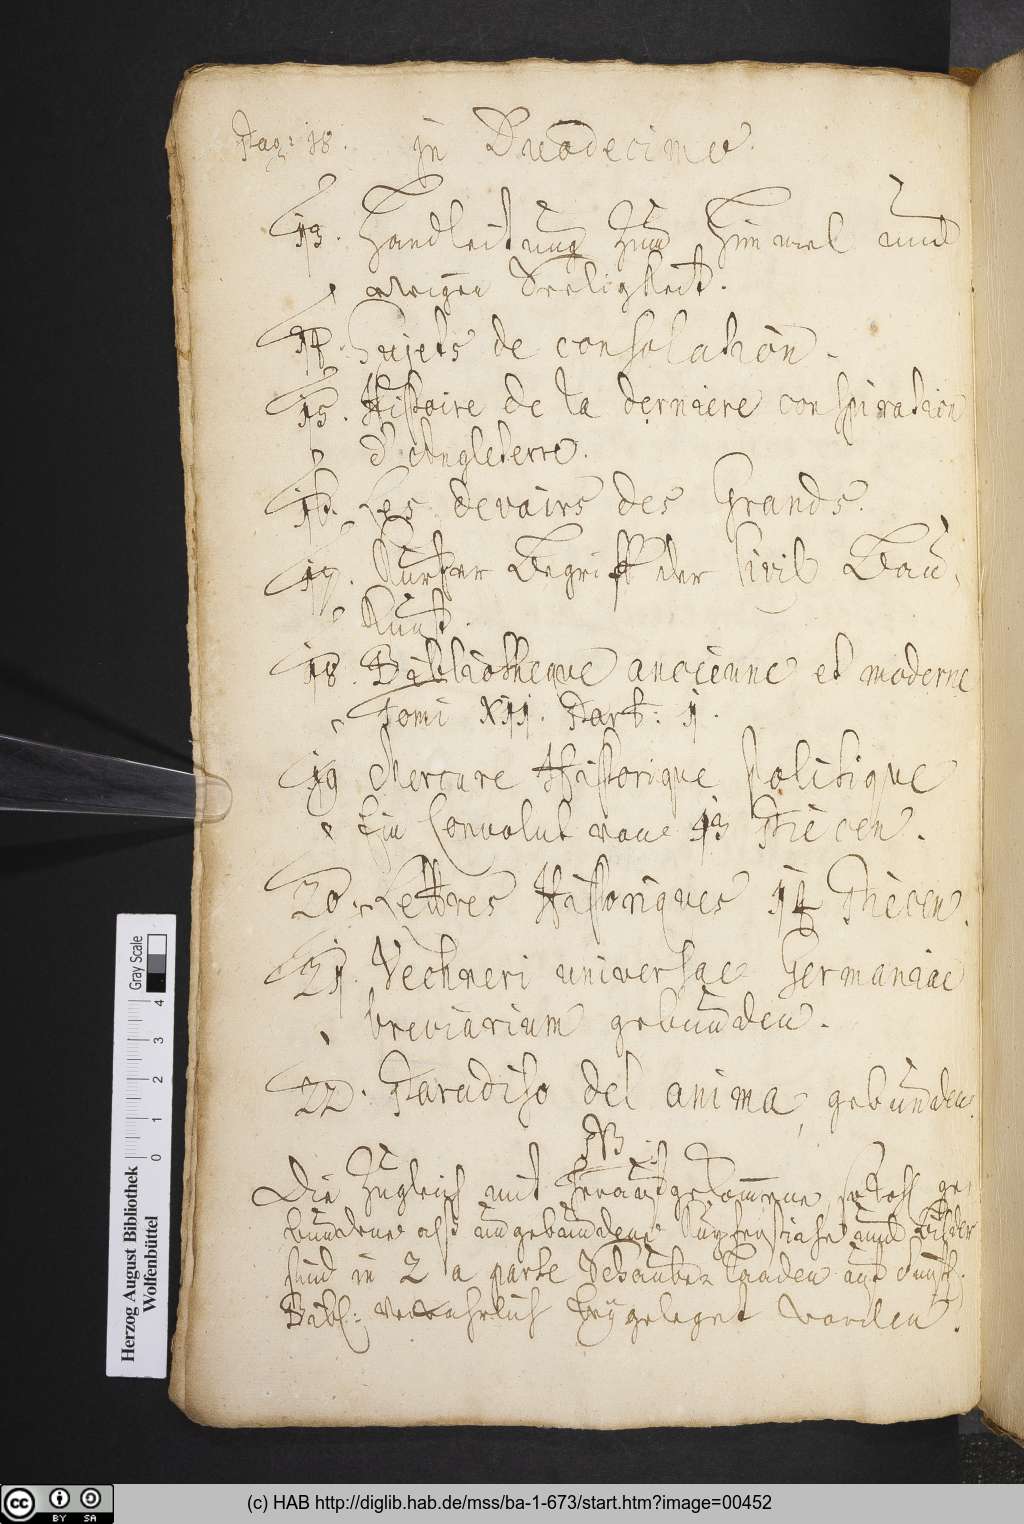 Pag: 18.
in Duodecimo.
13. Handleitung zum Himmel und
ewigen Seeligkeit.
14. Sujets de consolation.
15. Histoire de la derniere conspiration
d'Angleterre.
16. Les devoirs des Grands.
17. Kurtzer Begriff der Civil Bau
Kunst.
18. Bibliotheque ancienne et moderne
Tomi XII. Part: 1.
19 Mercure Historique Politique
Ein Convolut von 13 Piecen.
20. Lettres Historiques 14 Piecen.
21. Vechneri universae Germaniae
breviarium gebunden.
22. Paradiso del anima, gebunden.
NB
Die zugleich mit heraufgekommene sowohl ge-
bundene alß ungebundene Kupferstiche und Bilder
sind in 2 a parte Schaubladen auf
Bibl: verwahrlich beygeleget worden.
Gray Scale
4
3
2
1
0
Herzog August Bibliothek
Wolfenbüttel
cc BY SA
(c) HAB http://diglib.hab.de/mss/ba-1-673/start.htm?image=00452